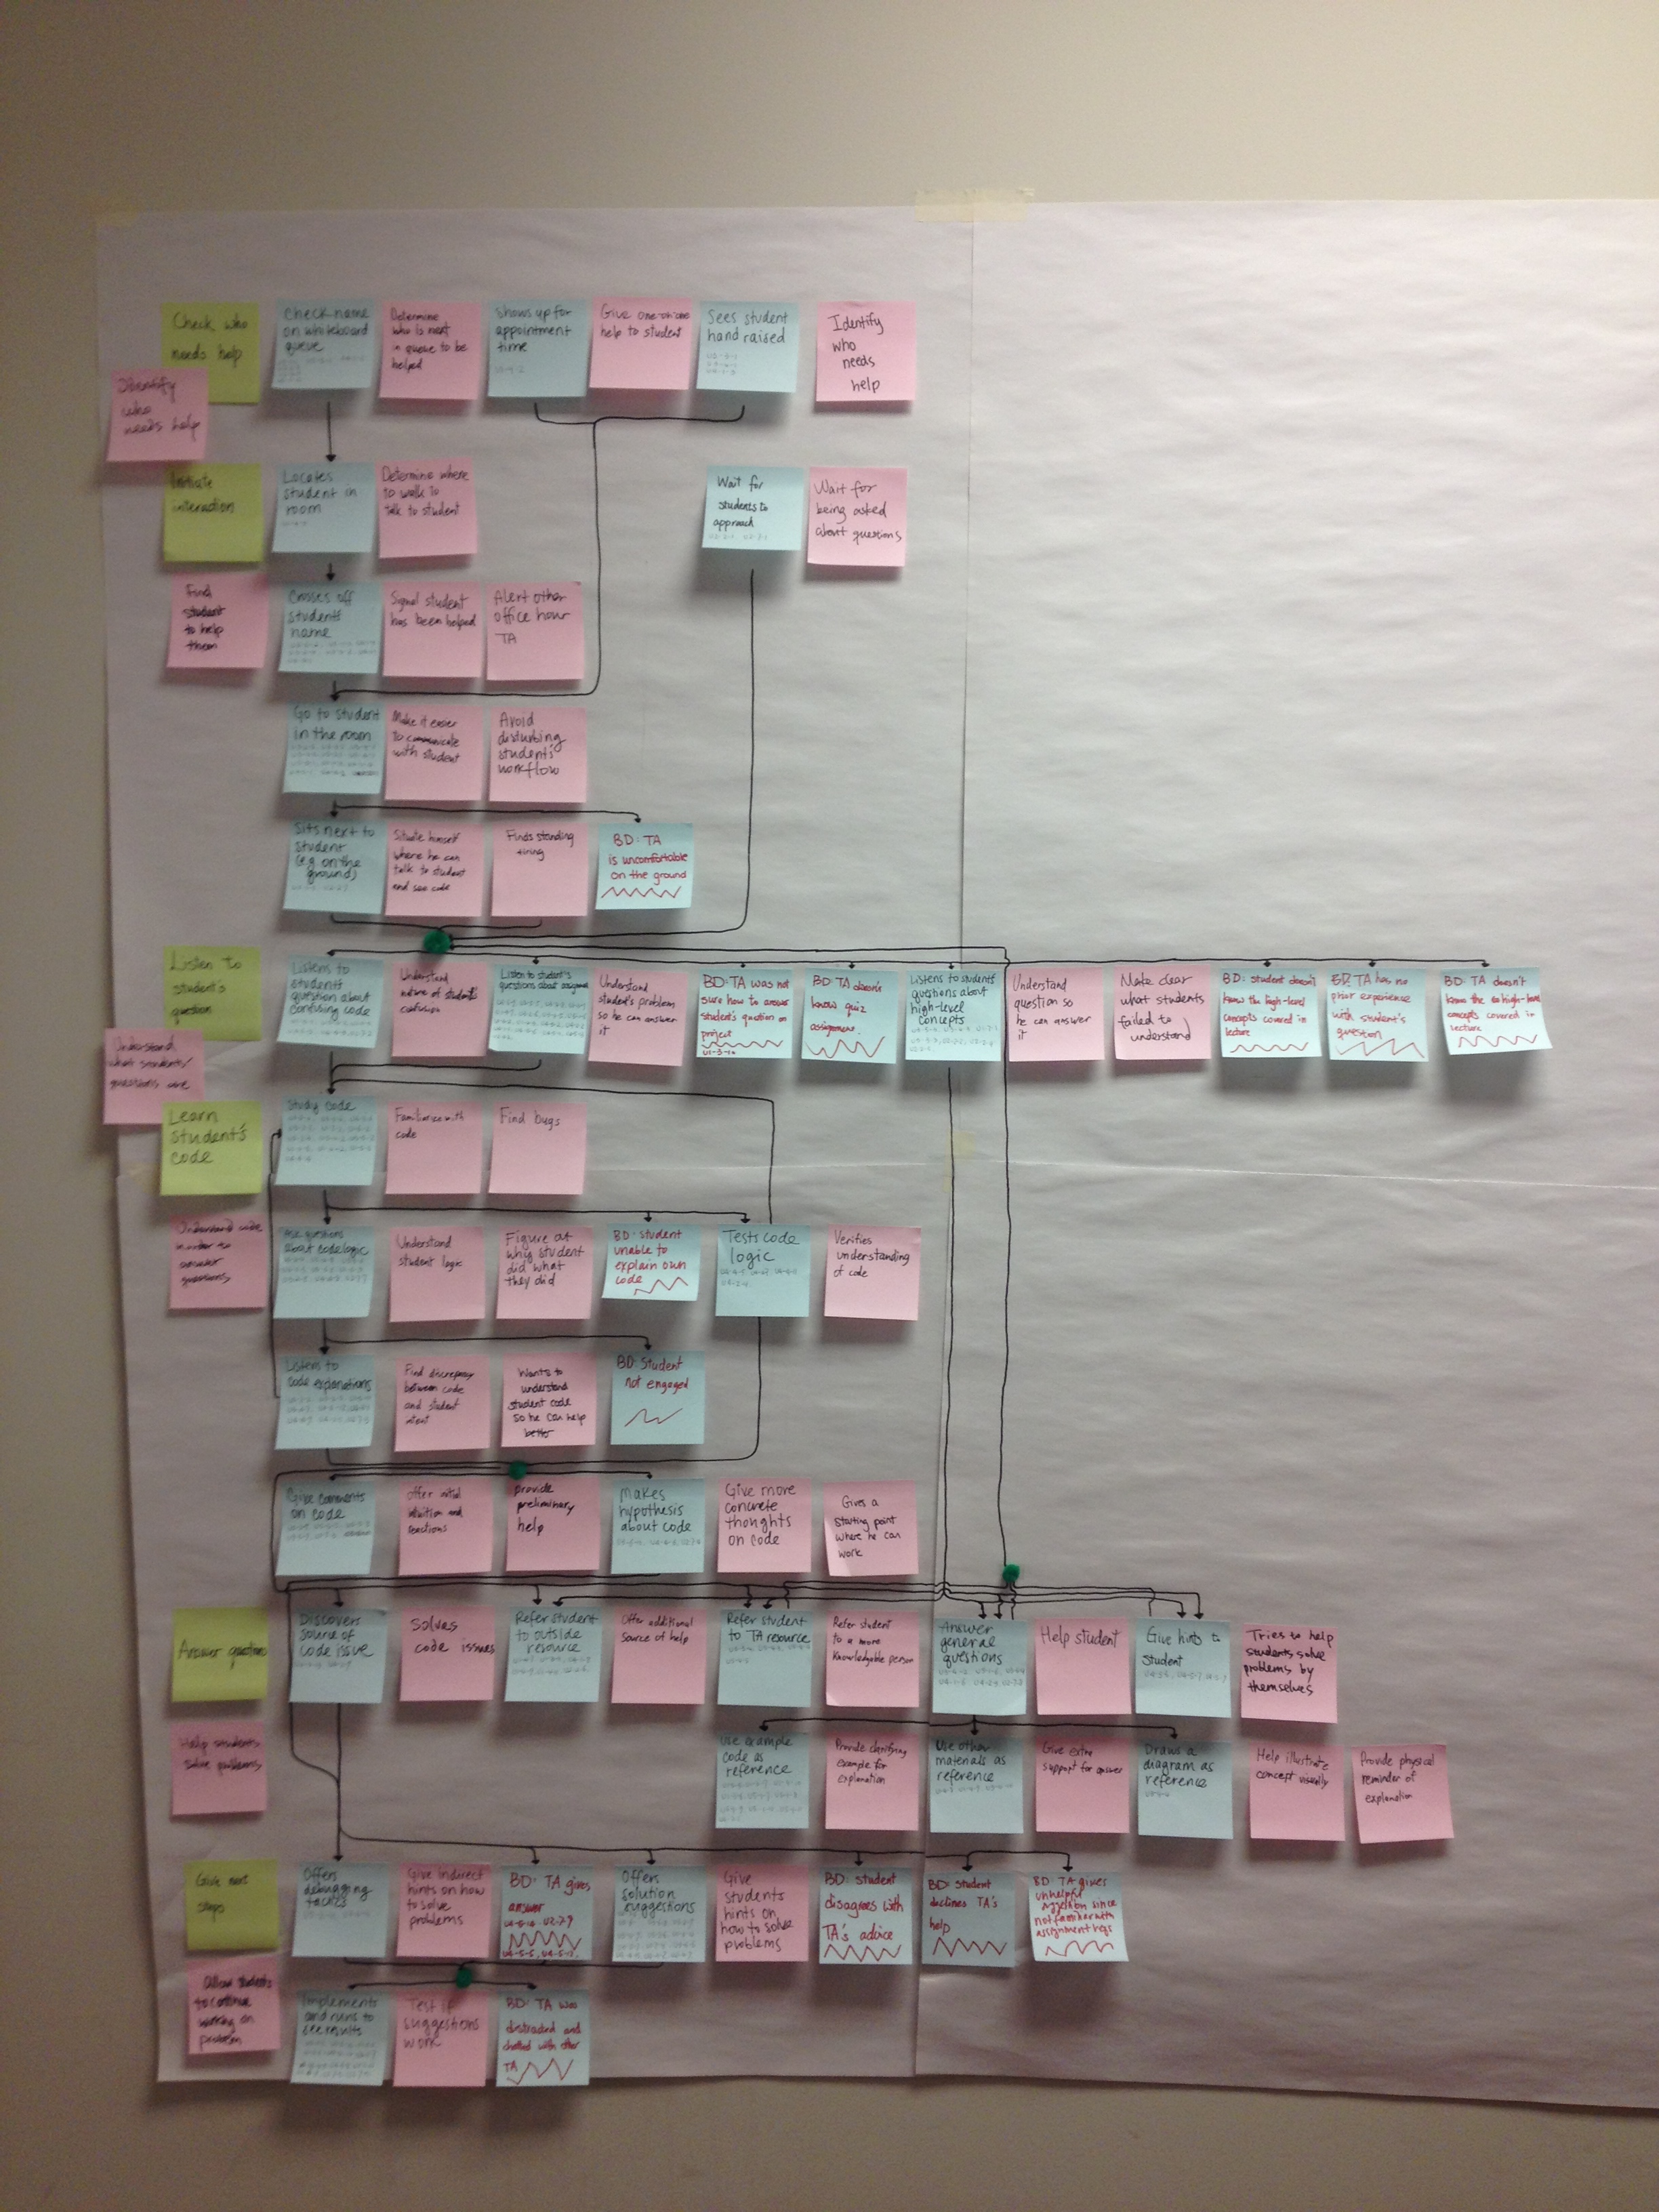 Check who
needs help
Check name
on whiteboard
queue
Determine
who is next
in queue to be
helped
Shows up for
appointment
time
Give one-on-one
help to student
Sees student
hand raised
Identify
who
needs
help
Identify
who
needs help
Initiate
interaction
Locates
student in
room
Determine where
to walk to
talk to student
Wait for
students to
approach
Wait for
being asked
about questions
Find
student
to help
them
Crosses off
student's
name
Signal student
has been helped
Alert other
office hour
TA
Go to student
in the room
Make it easier
to communicate
with student
Avoid
disturbing
student's
workflow
Sits next to
student
(e.g. on the
ground)
Situate himself
where he can
talk to student
and see code
Finds standing
tiring
BD: TA
is uncomfortable
on the ground
Listen to
student's
question
Listens to
student's
question about
confusing code
Understand
nature of student's
confusion
Listen to student's
questions about
Understand
student's problem
so he can answer
it
BD: TA was not
sure how to answer
student's question on
project
BD: TA doesn't
know quiz
assignment.
Listens to students'
questions about
high-level
concepts
Understand
question so
he can answer
it
Make clear
what students
failed to
understand
BD: student doesn't
know the high-level
concepts covered in
lecture
BD: TA has no
prior experience
with student's
question
BD: TA doesn't
know the high-level
concepts covered in
lecture
Understand
what students'
questions are
Learn
student's
code
Study code
Familiarize with
code
Find bugs
Understand code
in order to
answer
questions
Ask questions
about code logic
Understand
student logic
Figure out
why student
did what
they did
BD: student
unable to
explain own
code
Tests code
logic
Verifies
understanding
of code
Listens to
code explanations
Find discrepancy
between code
and student
intent
Wants to
understand
student code
so he can help
better
BD: Student
not engaged
Give comments
on code
Offer initial
intuition and
reactions
provide
preliminary
help
Makes
hypothesis
about code
Give more
concrete
thoughts
on code
Gives a
starting point
where he can
work
Answer questions
Discovers
source of
code issue
Solves
code issues
Refer student
to outside
resource
Offer additional
source of help
Refer student
to TA resource
Refer student
to a more
knowledgable person
Answer
general
questions
Help student
Give hints to
student
Tries to help
students solve
problems by
themselves
Help students
solve problems
Use example
code as
reference
Provide clarifying
example for
explanation
Use other
materials as
reference
Give extra
support for answer
Draws a
diagram as
reference
Help illustrate
concept visually
Provide physical
reminder of
explanation
Give next
steps
Offers
debugging
tactics
Give indirect
hints on how
to solve
problems
BD: TA gives
answer
Offers
solution
suggestions
Give
students
hints on
how to solve
problems
BD: student
disagrees with
TA's advice
BD: student
declines TA's
help
BD: TA gives
unhelpful
suggestion since
not familiar with
assignment reqs
Allow students
to continue
working on
problem
Implements
and runs to
see results
Test if
suggestions
work
BD: TA was
distracted and
chatted with other
TA